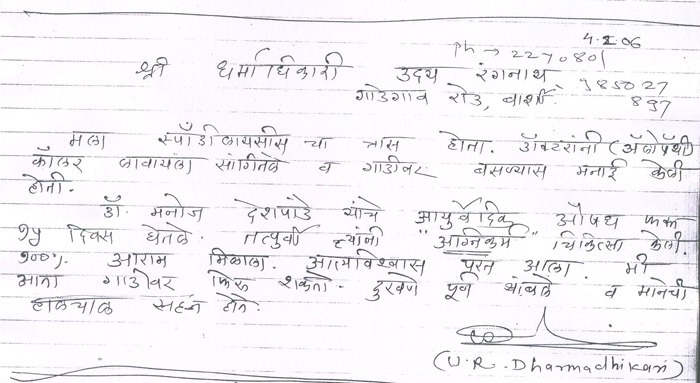 4.2.06
ph → 2270801
श्री धर्माधिकारी उदय रंगनाथ 985027
गाडेगाव रोड, बार्शी 897
मला स्पाँडीलायसीस चा त्रास होता. डॉक्टरांनी (अ‍ॅलोपॅथी)
कॉलर लावायला सांगितले व गाडीवर बसण्यास मनाई केली
होती.
डॉ. मनोज देशपांडे यांचे आयुर्वेदिक औषध फक्त
१५ दिवस घेतले. तत्पुर्वी त्यांनी "अग्निकर्म" चिकित्सा केली.
१००% आराम मिळाला. आत्मविश्वास परत आला. मी
आता गाडीवर फिरू शकतो. दुखणे पूर्ण थांबले व मानेची
हालचाल सहज होते.
(U.R. Dharmadhikari)